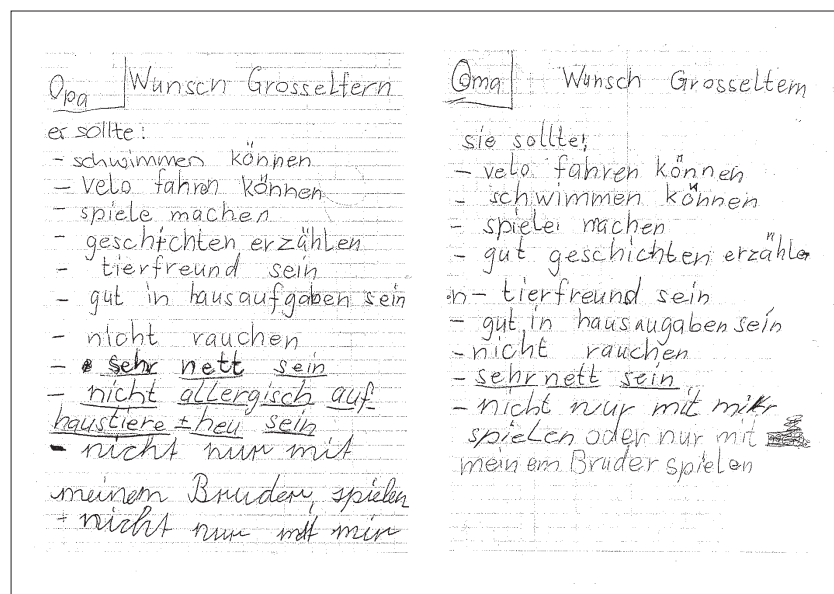 Opa Wunsch Grosseltern
er sollte:
- schwimmen können
- velo fahren können
- spiele machen
- geschichten erzählen
- tierfreund sein
- gut in hausaufgaben sein
- nicht rauchen
- sehr nett sein
- nicht allergisch auf
haustiere + heu sein
- nicht nur mit
meinem Bruder, spielen
- nicht nur mit mir
Oma Wunsch Grosseltern
sie sollte:
- velo fahren können
- schwimmen können
- spiele machen
- gut geschichten erzähle
n - tierfreund sein
- gut in hausaugaben sein
- nicht rauchen
- sehr nett sein
- nicht nur mit mir
spielen oder nur mit
meinem Bruder spielen